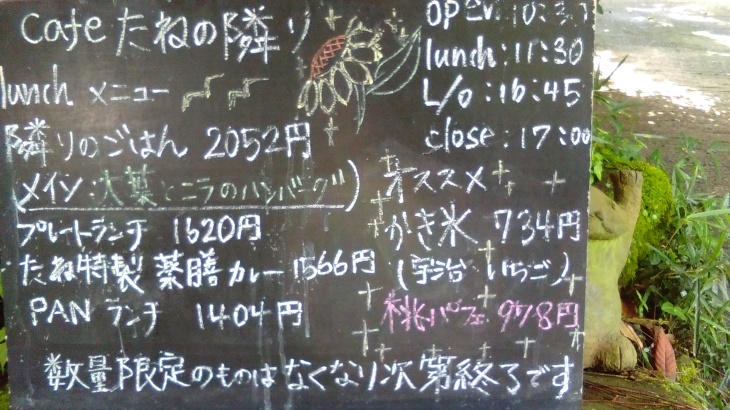 Cafe たねの隣り
open:10:30
lunch:11:30
L/o:16:45
close:17:00
lunch メニュー
隣りのごはん 2052円
(メイン:大葉とニラのハンバーグ)
プレートランチ 1620円
たね特製 薬膳カレー 1566円
PAN ランチ 1404円
オススメ
かき氷 734円
(宇治 いちご)
桃パフェ 978円
数量限定のものはなくなり次第終了です